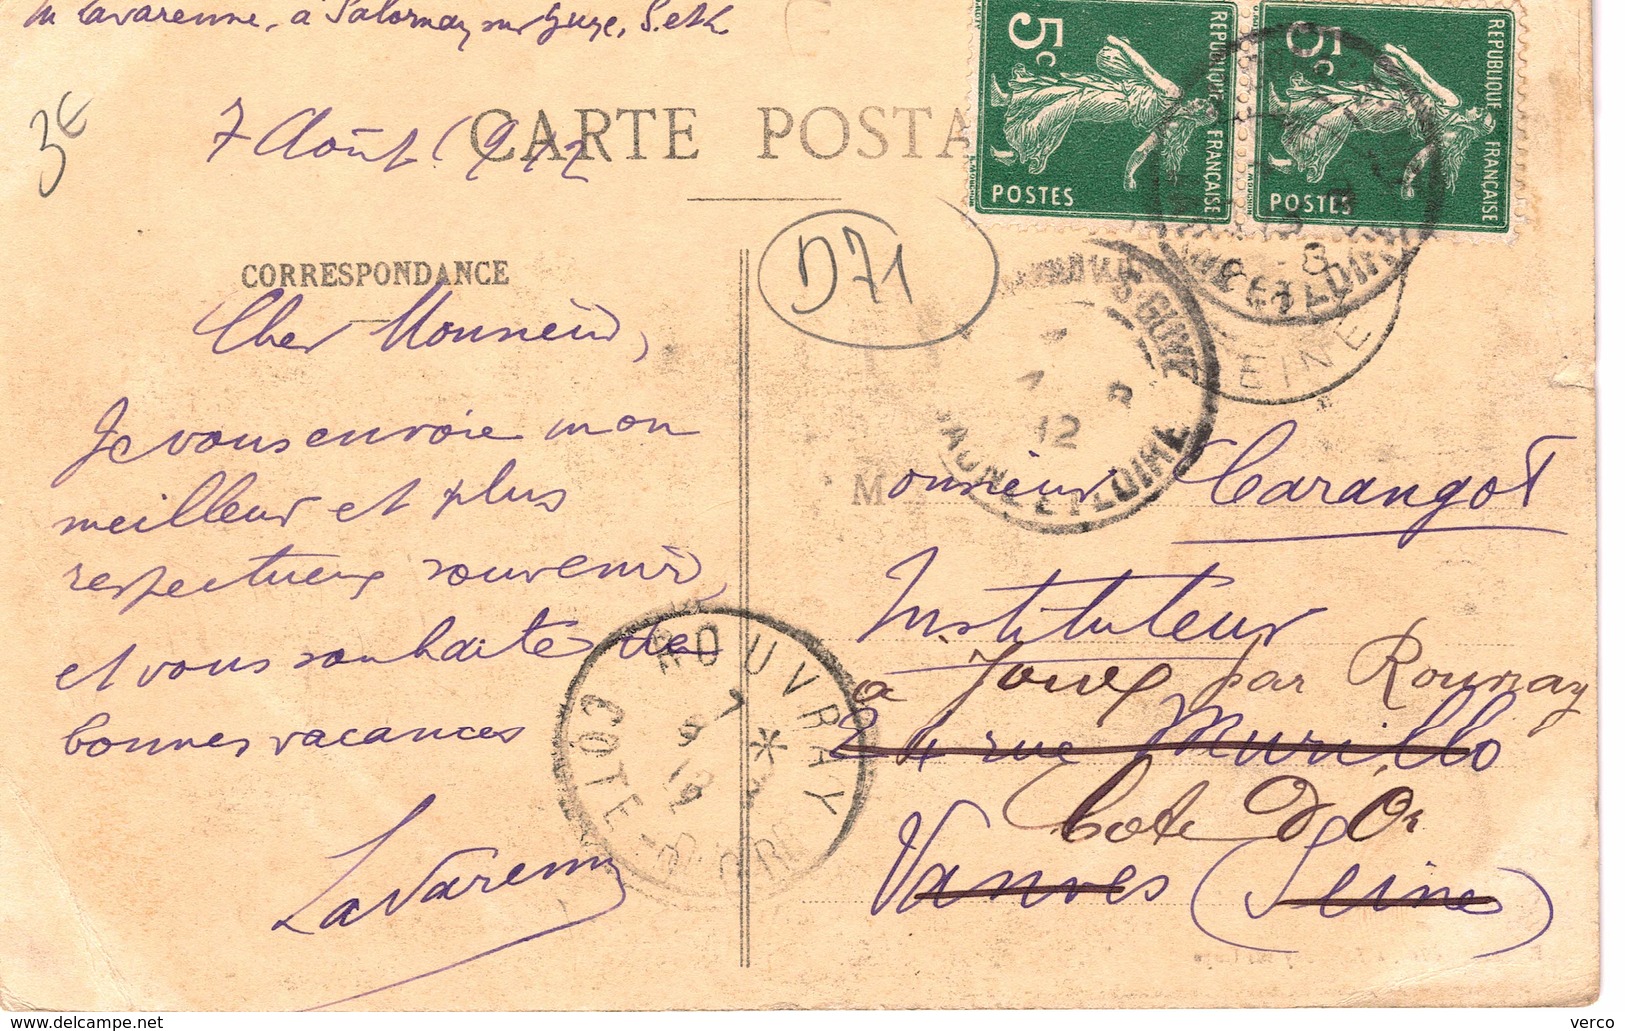 M Lavarenne, à Salornay sur Guye, S. et L.
3€
7 Août 1912
CARTE POSTA
5c
REPUBLIQUE FRANÇAISE
POSTES
5c
REPUBLIQUE FRANÇAISE
POSTES
D71
CORRESPONDANCE
Cher Monsieur,
Je vous envoie mon
meilleur et plus
respectueux souvenir
et vous souhaite de
bonnes vacances
Lavarenne
S. GUYE
12
SAONE ET LOIRE
ET LOIRE
SEINE
Monsieur Carangot
Instituteur
à Joux par Rouvray
24 rue Murillo
Cote d'Or
Vanves (Seine)
ROUVRAY
CÔTE-D'OR
delcampe.net
verco